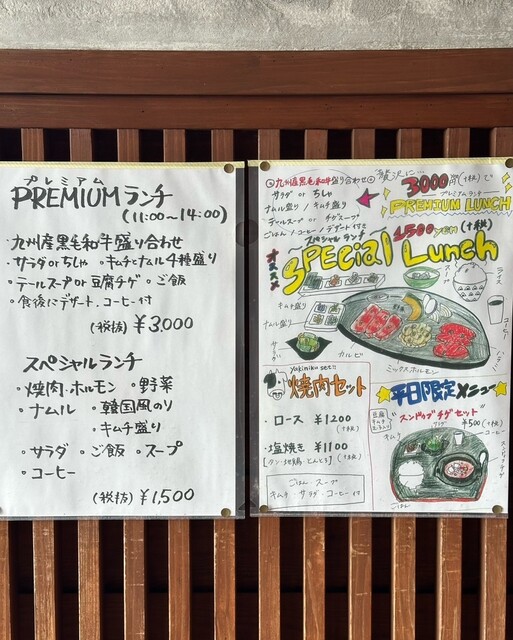 プレミアム
PREMIUM ランチ
(11:00～14:00)
・九州産黒毛和牛盛り合わせ
・サラダorちしゃ ・キムチとナムル4種盛り
・テールスープor豆腐チゲ ・ご飯
・食後にデザート、コーヒー付
(税抜) ¥3,000
スペシャルランチ
・焼肉・ホルモン ・野菜
・ナムル ・韓国風のり
・キムチ盛り
・サラダ ・ご飯 ・スープ
・コーヒー
(税抜) ¥1,500
九州産黒毛和牛盛り合わせ
サラダ or ちしゃ
ナムル盛り / キムチ盛り
テールスープ or チゲスープ
ごはん / コーヒー / デザート付き
贅沢に
3000円(+税)で
プレミアムランチ
PREMIUM LUNCH
オススメ
スペシャルランチ
1500yen (+税)
SPECIAL Lunch
スープ
ライス
キムチ盛り
ナムル盛り
サラダ
カルビ
ミックスホルモン
ハラミ
コーヒー
yakiniku set!!
焼肉セット
・ロース ¥1200
(+税)
・塩焼き ¥1100
[タン・地鶏・とんとろ] (+税)
ごはん スープ
キムチ・サラダ・コーヒー付
平日限定メニュー
"スンドゥブチゲセット"
¥500(+税)
キムチ
サラダ
コーヒー
スンドゥブチゲ
ごはん